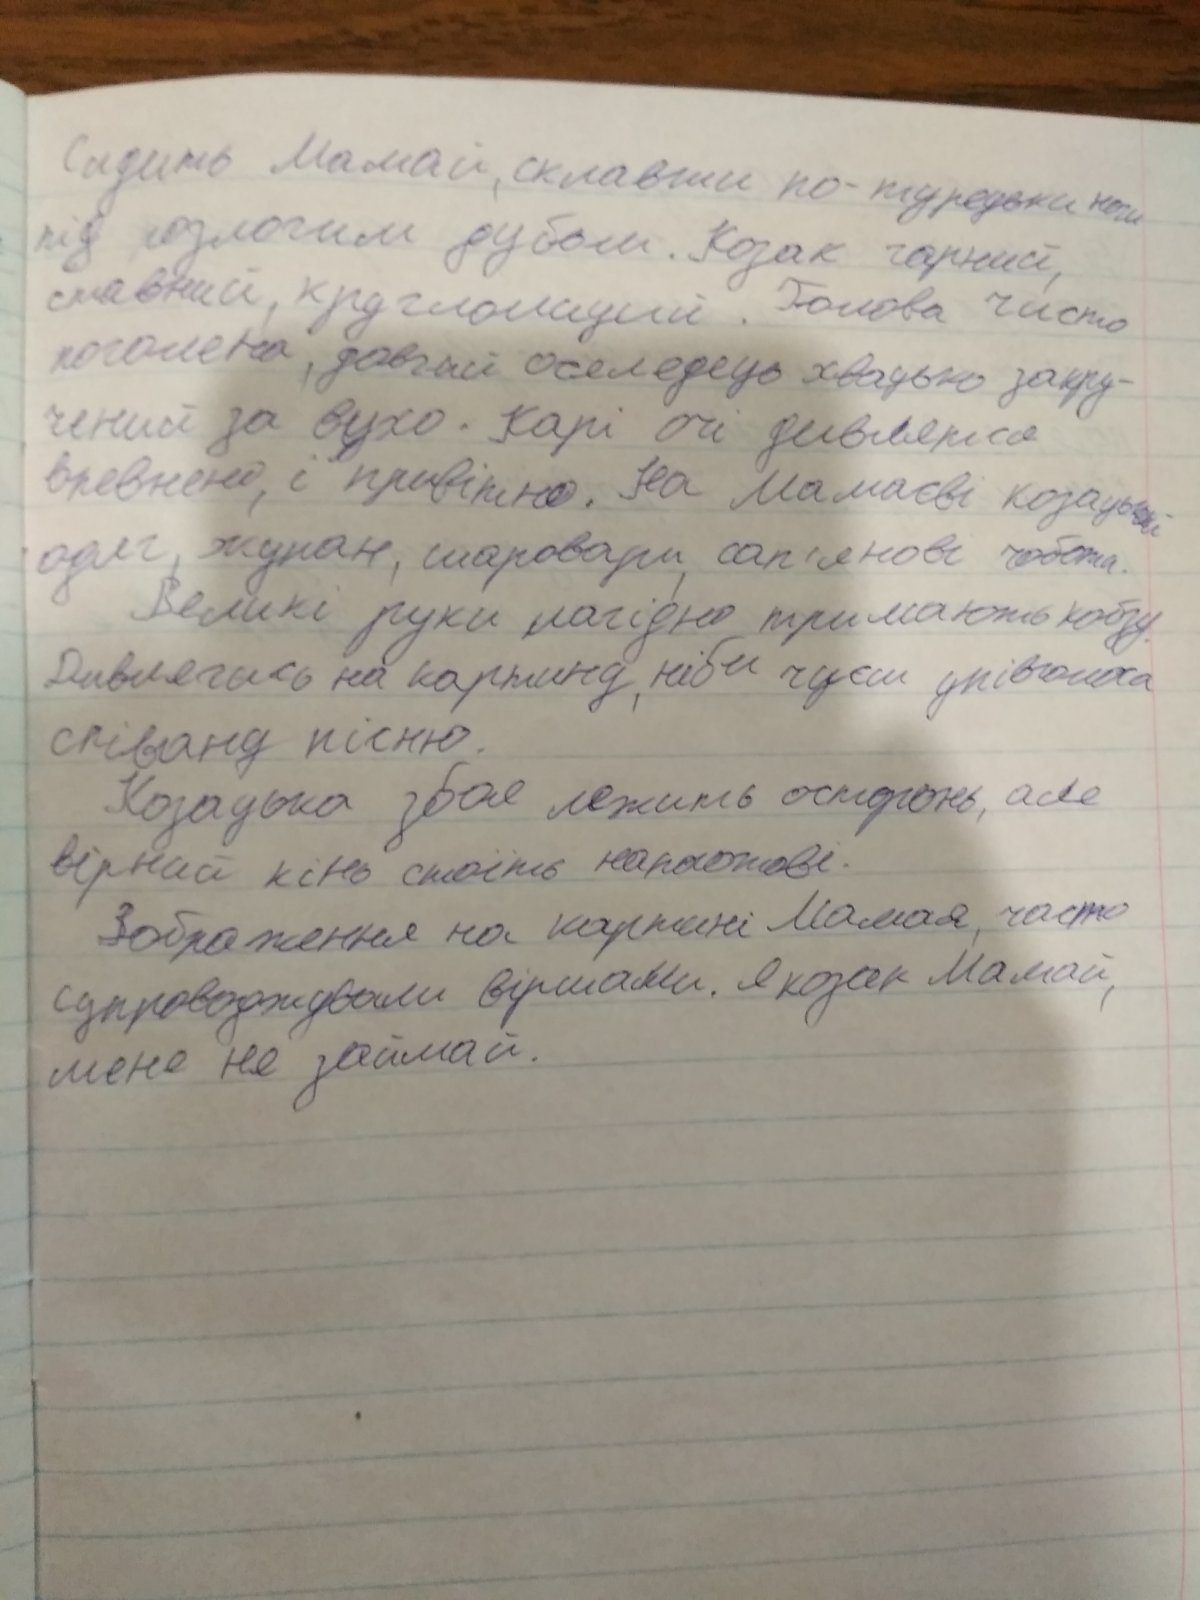 Сидить Мамай, склавши по-турецьки ноги
під розлогим дубом. Козак гарний,
ставний, круглолиций. Голова чисто
поголена, довгий оселедець хвацько закру-
чений за вухо. Карі очі дивляться
впевнено, і привітно. На Мамаєві козацький
одяг, жупан, шаровари, сап'янові чоботи.
Великі руки лагідно тримають кобзу.
Дивлячись на картину, ніби чуєш упівголоса
співану пісню.
Козацька зброя лежить осторонь, але
вірний кінь стоїть напоготові.
Зображення на картині Мамая, часто
супроводжували віршами. Я козак Мамай,
мене не займай.